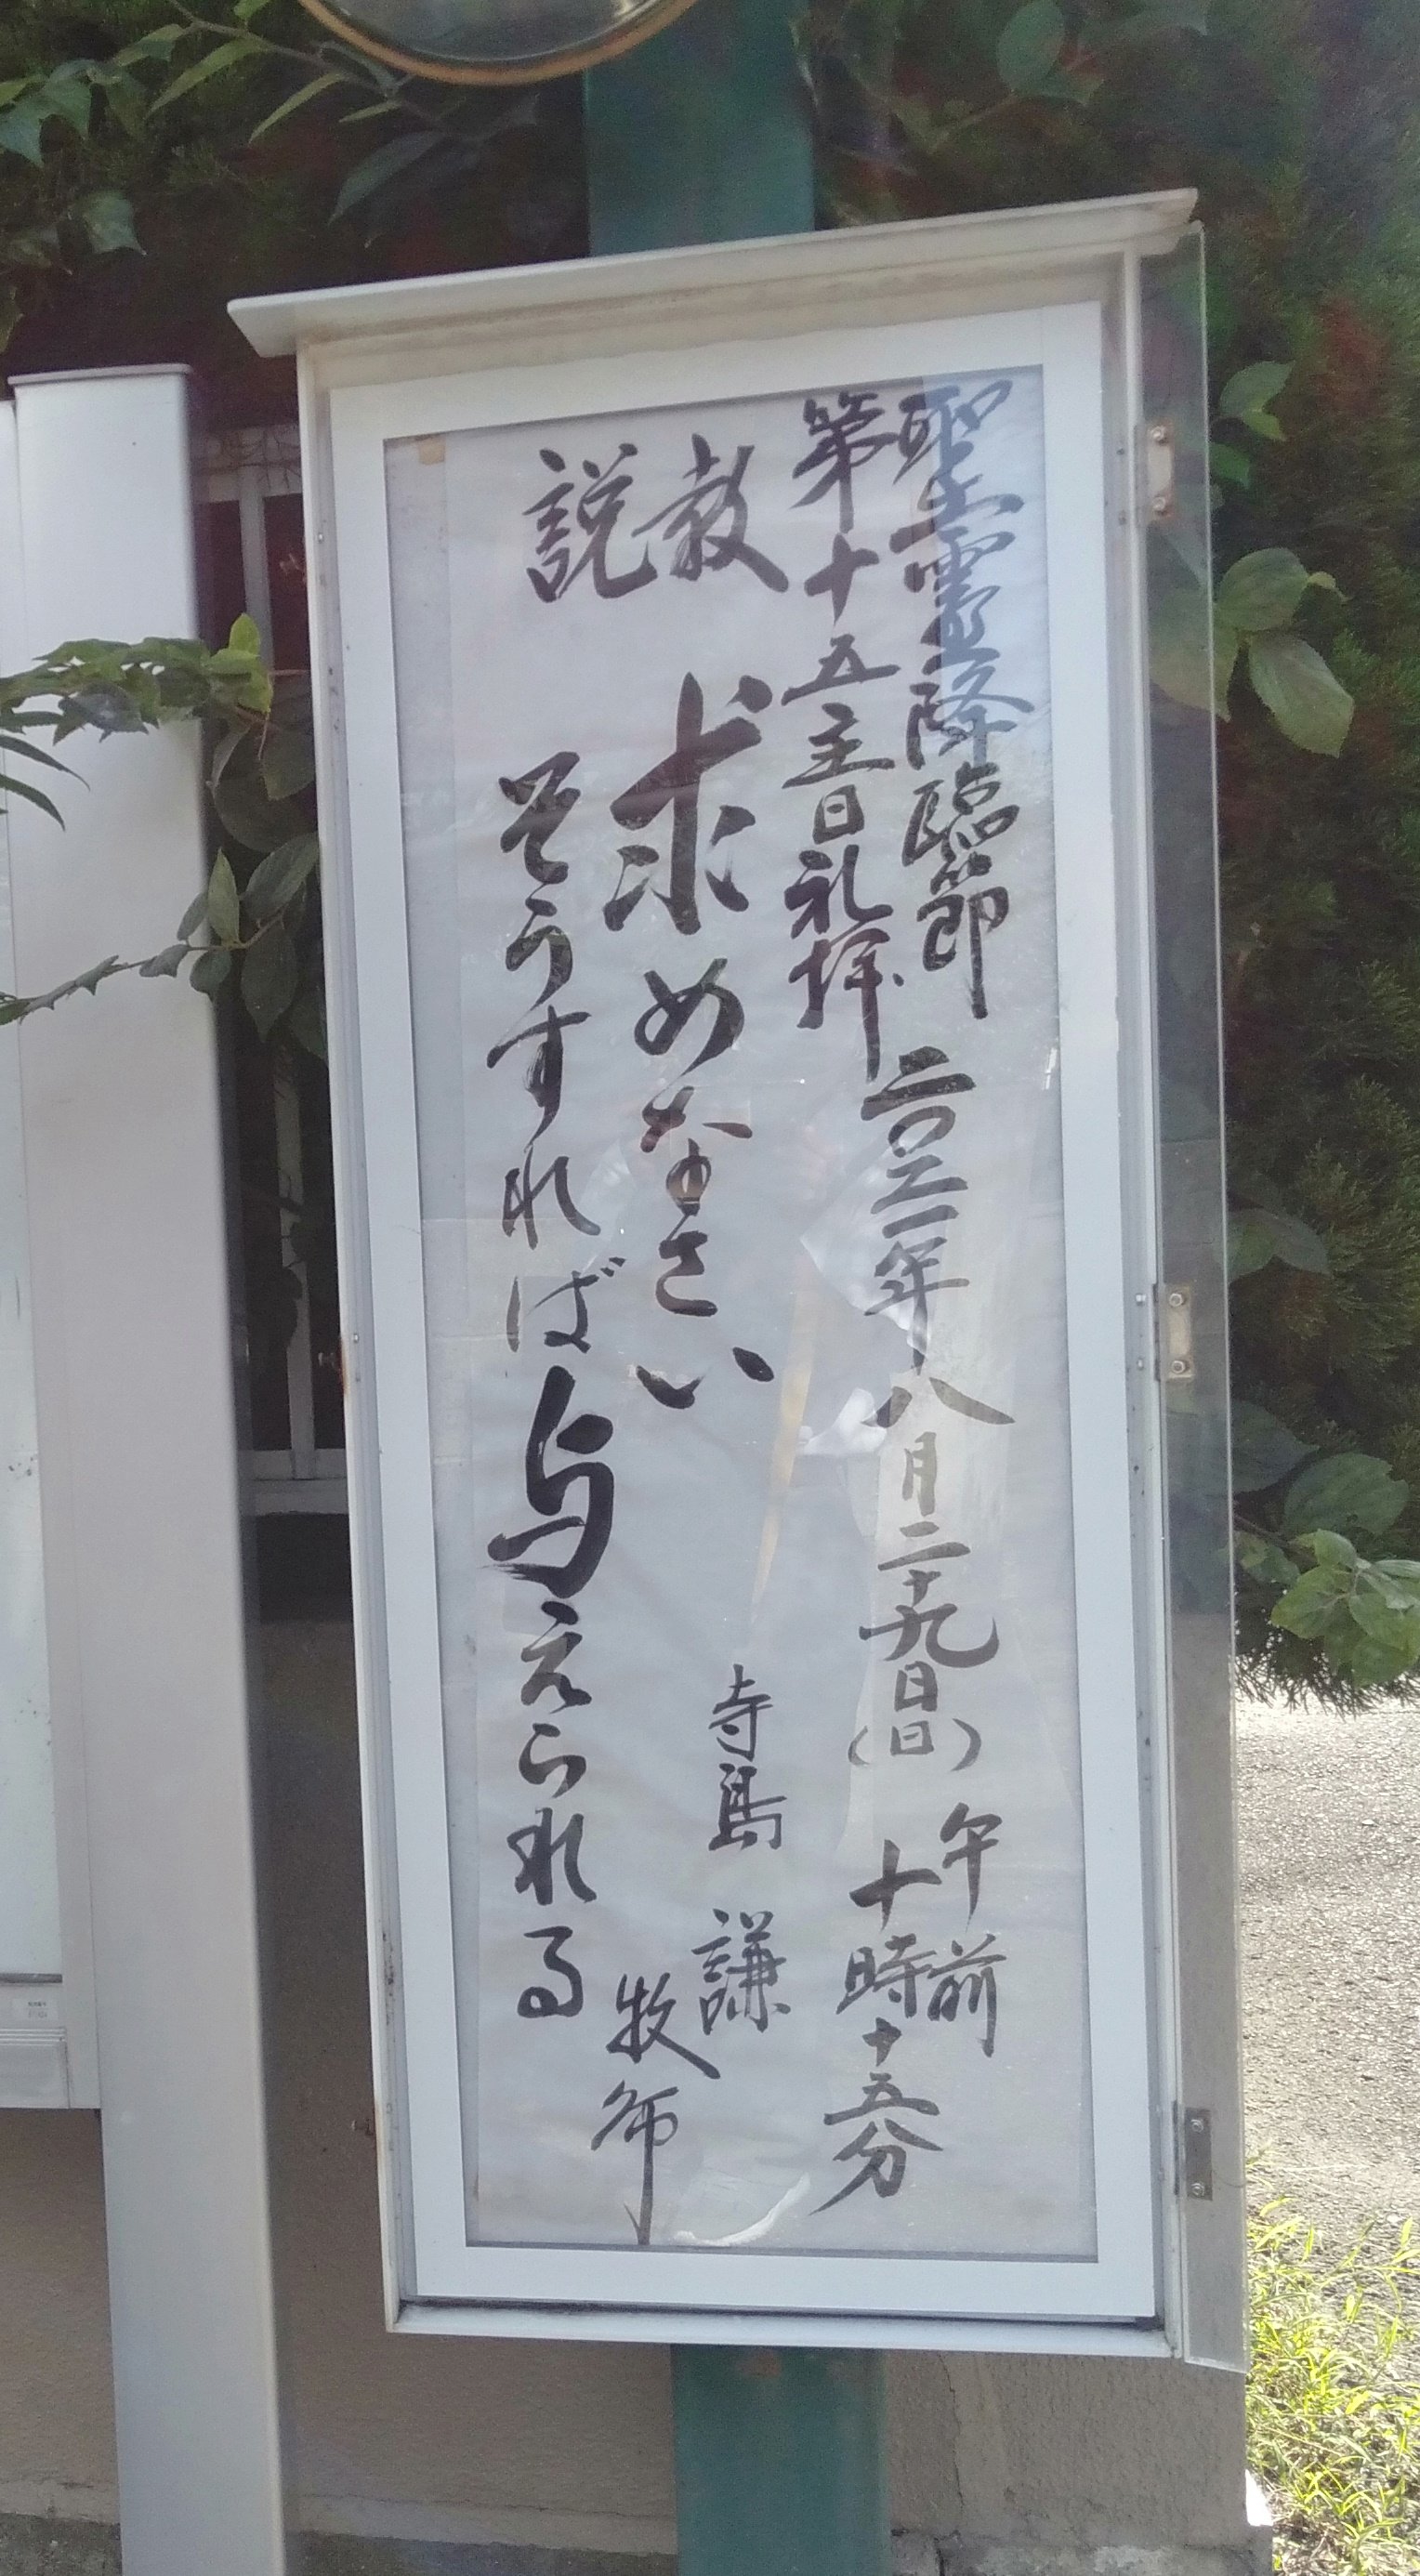 聖霊降臨節
第十五主日礼拝
二〇二一年八月二十九日(日)
午前
十時十五分
説教
求めなさい
そうすれば与えられる
寺島 謙
牧師